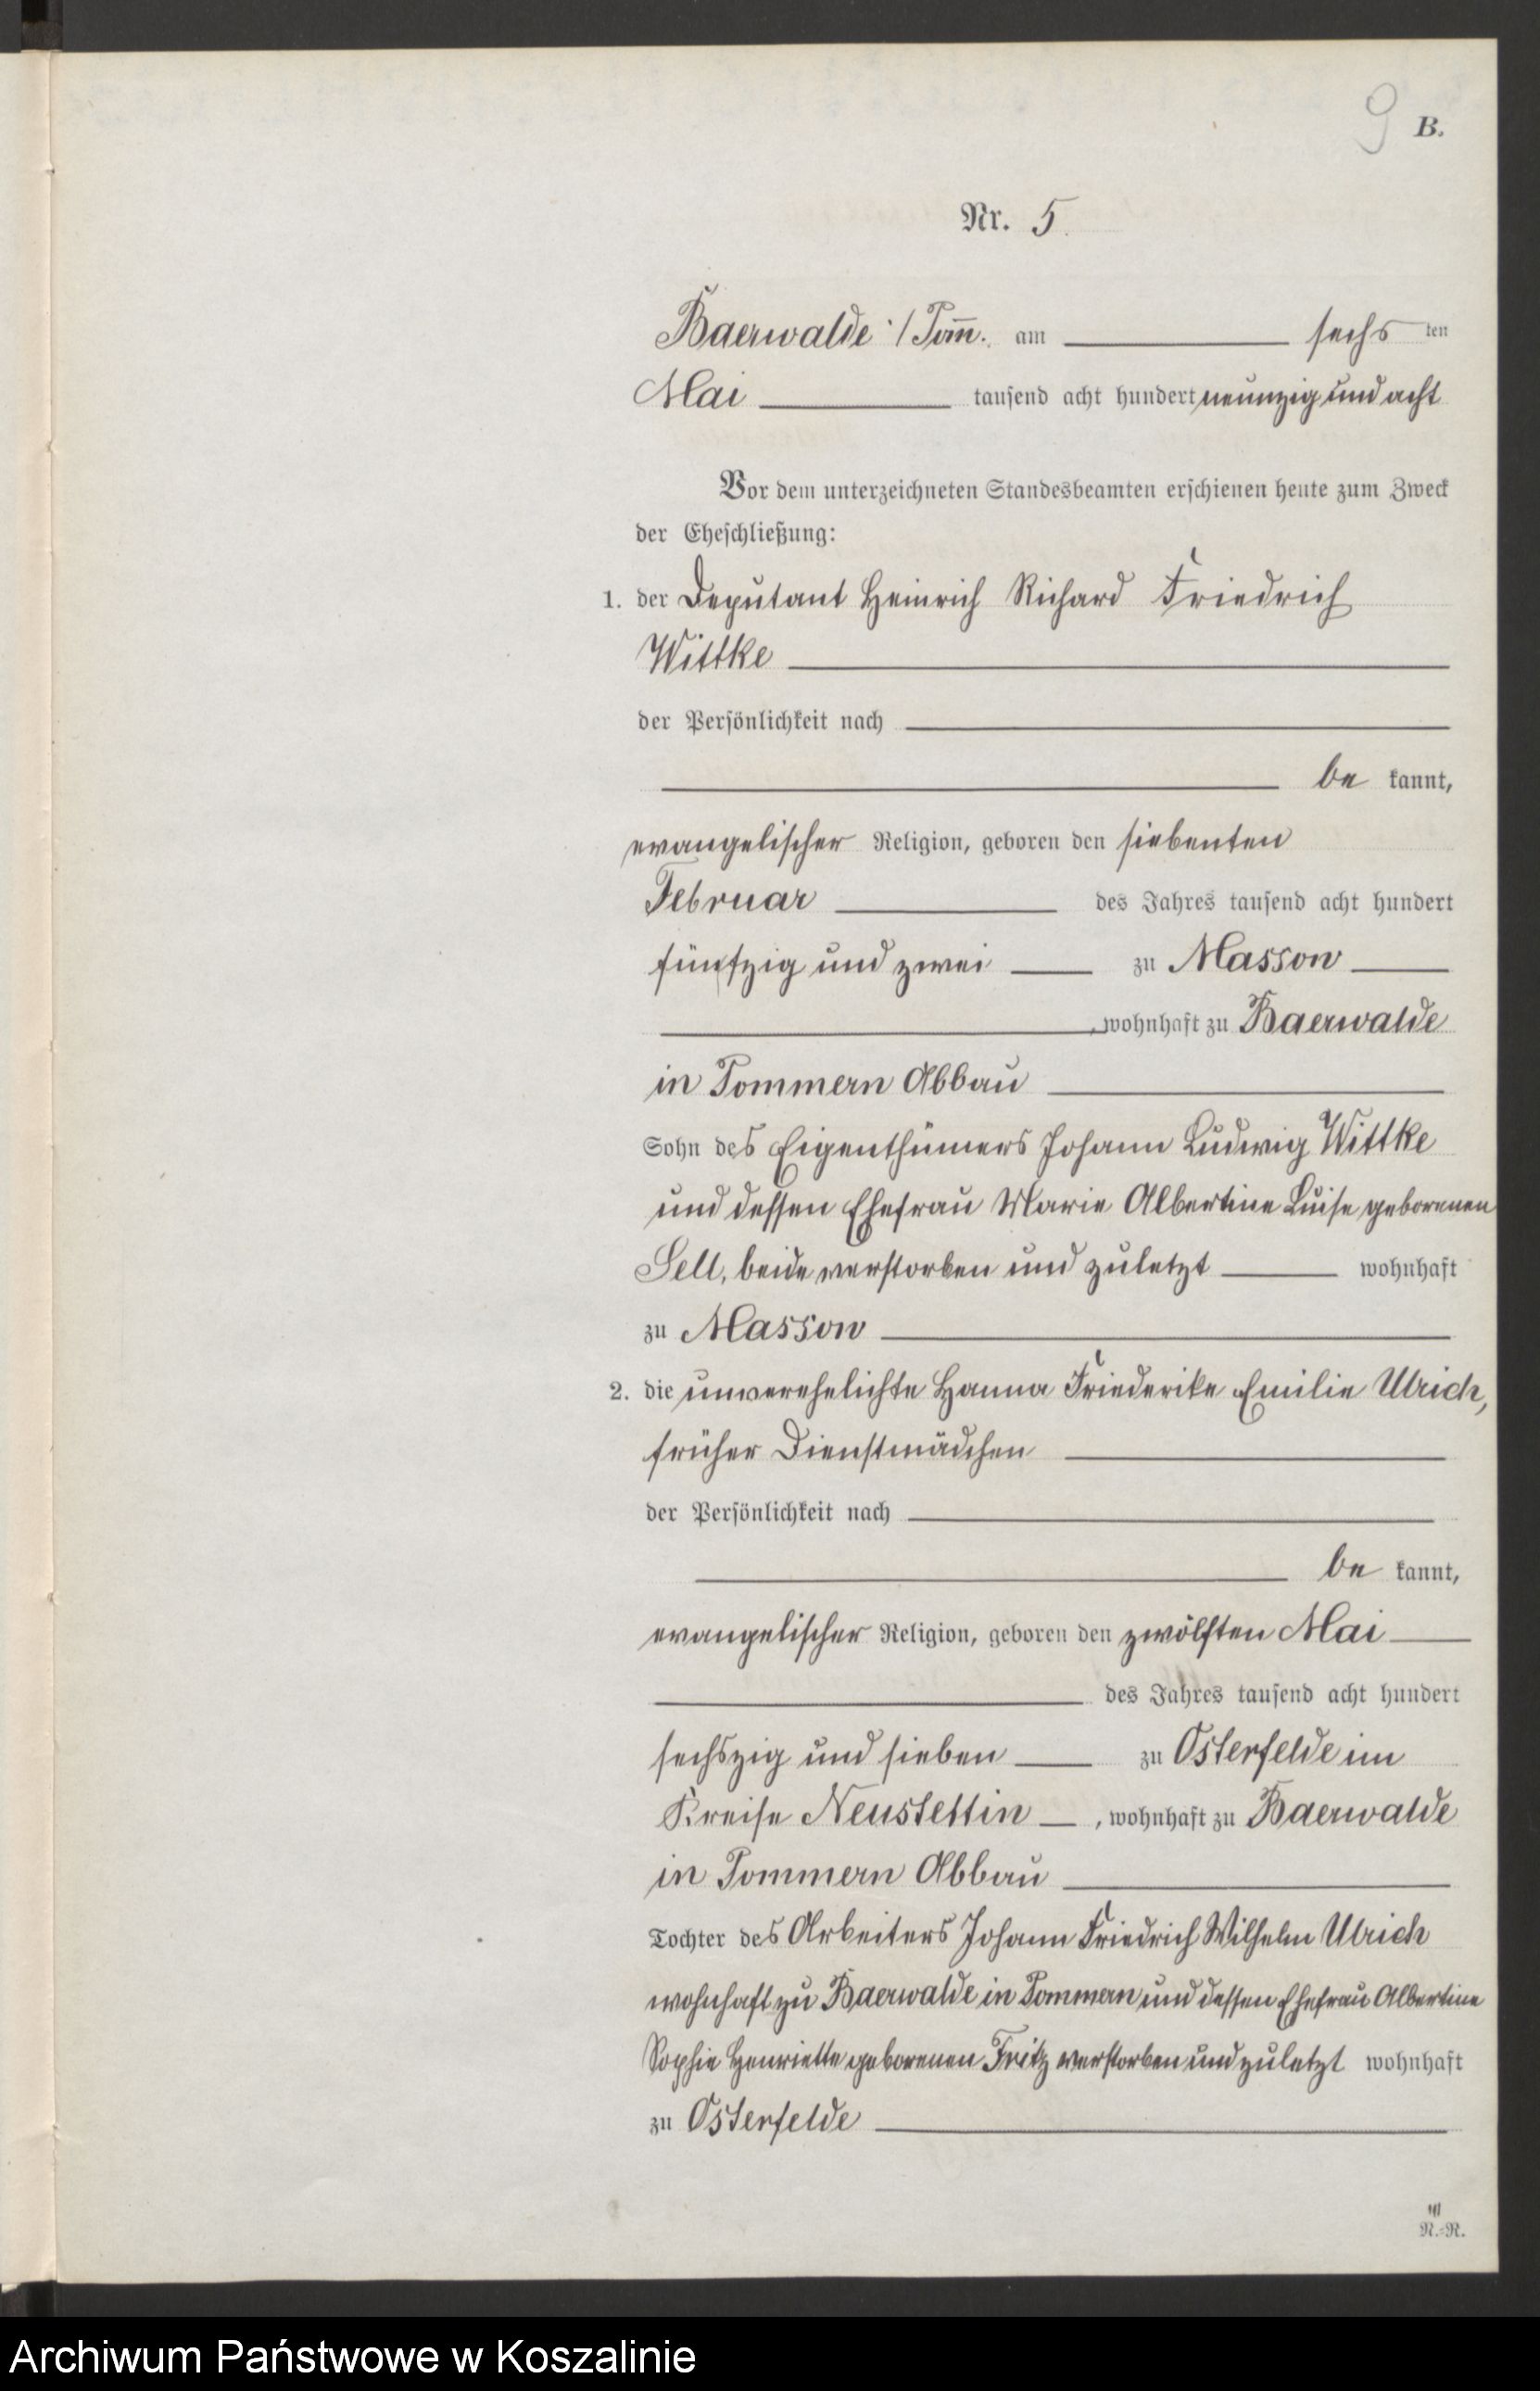 9 B.
Nr. 5.
Baerwalde i/Pom̄. am sechs ten
Mai tausend acht hundert neunzig und acht
Vor dem unterzeichneten Standesbeamten erschienen heute zum Zweck
der Eheschließung:
1. der Deputant Heinrich Richard Friedrich
Wittke
der Persönlichkeit nach
be kannt,
evangelischer Religion, geboren den siebenten
Februar des Jahres tausend acht hundert
fünfzig und zwei zu Masson
, wohnhaft zu Baerwalde
in Pommern Abbau
Sohn des Eigenthümers Johann Ludwig Wittke
und dessen Ehefrau Marie Albertine Luise geborenen
Sell, beide verstorben und zuletzt wohnhaft
zu Masson
2. die unverehelichte Hanna Friederike Emilie Ulrich,
früher Dienstmädchen
der Persönlichkeit nach
be kannt,
evangelischer Religion, geboren den zwölften Mai
des Jahres tausend acht hundert
sechszig und sieben zu Osterfelde im
Kreise Neustettin, wohnhaft zu Baerwalde
in Pommern Abbau
Tochter des Arbeiters Johann Friedrich Wilhelm Ulrich
wohnhaft zu Baerwalde in Pommern und dessen Ehefrau Albertine
Sophie Henriette geborenen Fritz verstorben und zuletzt wohnhaft
zu Osterfelde
R.=R.
Archiwum Państwowe w Koszalinie